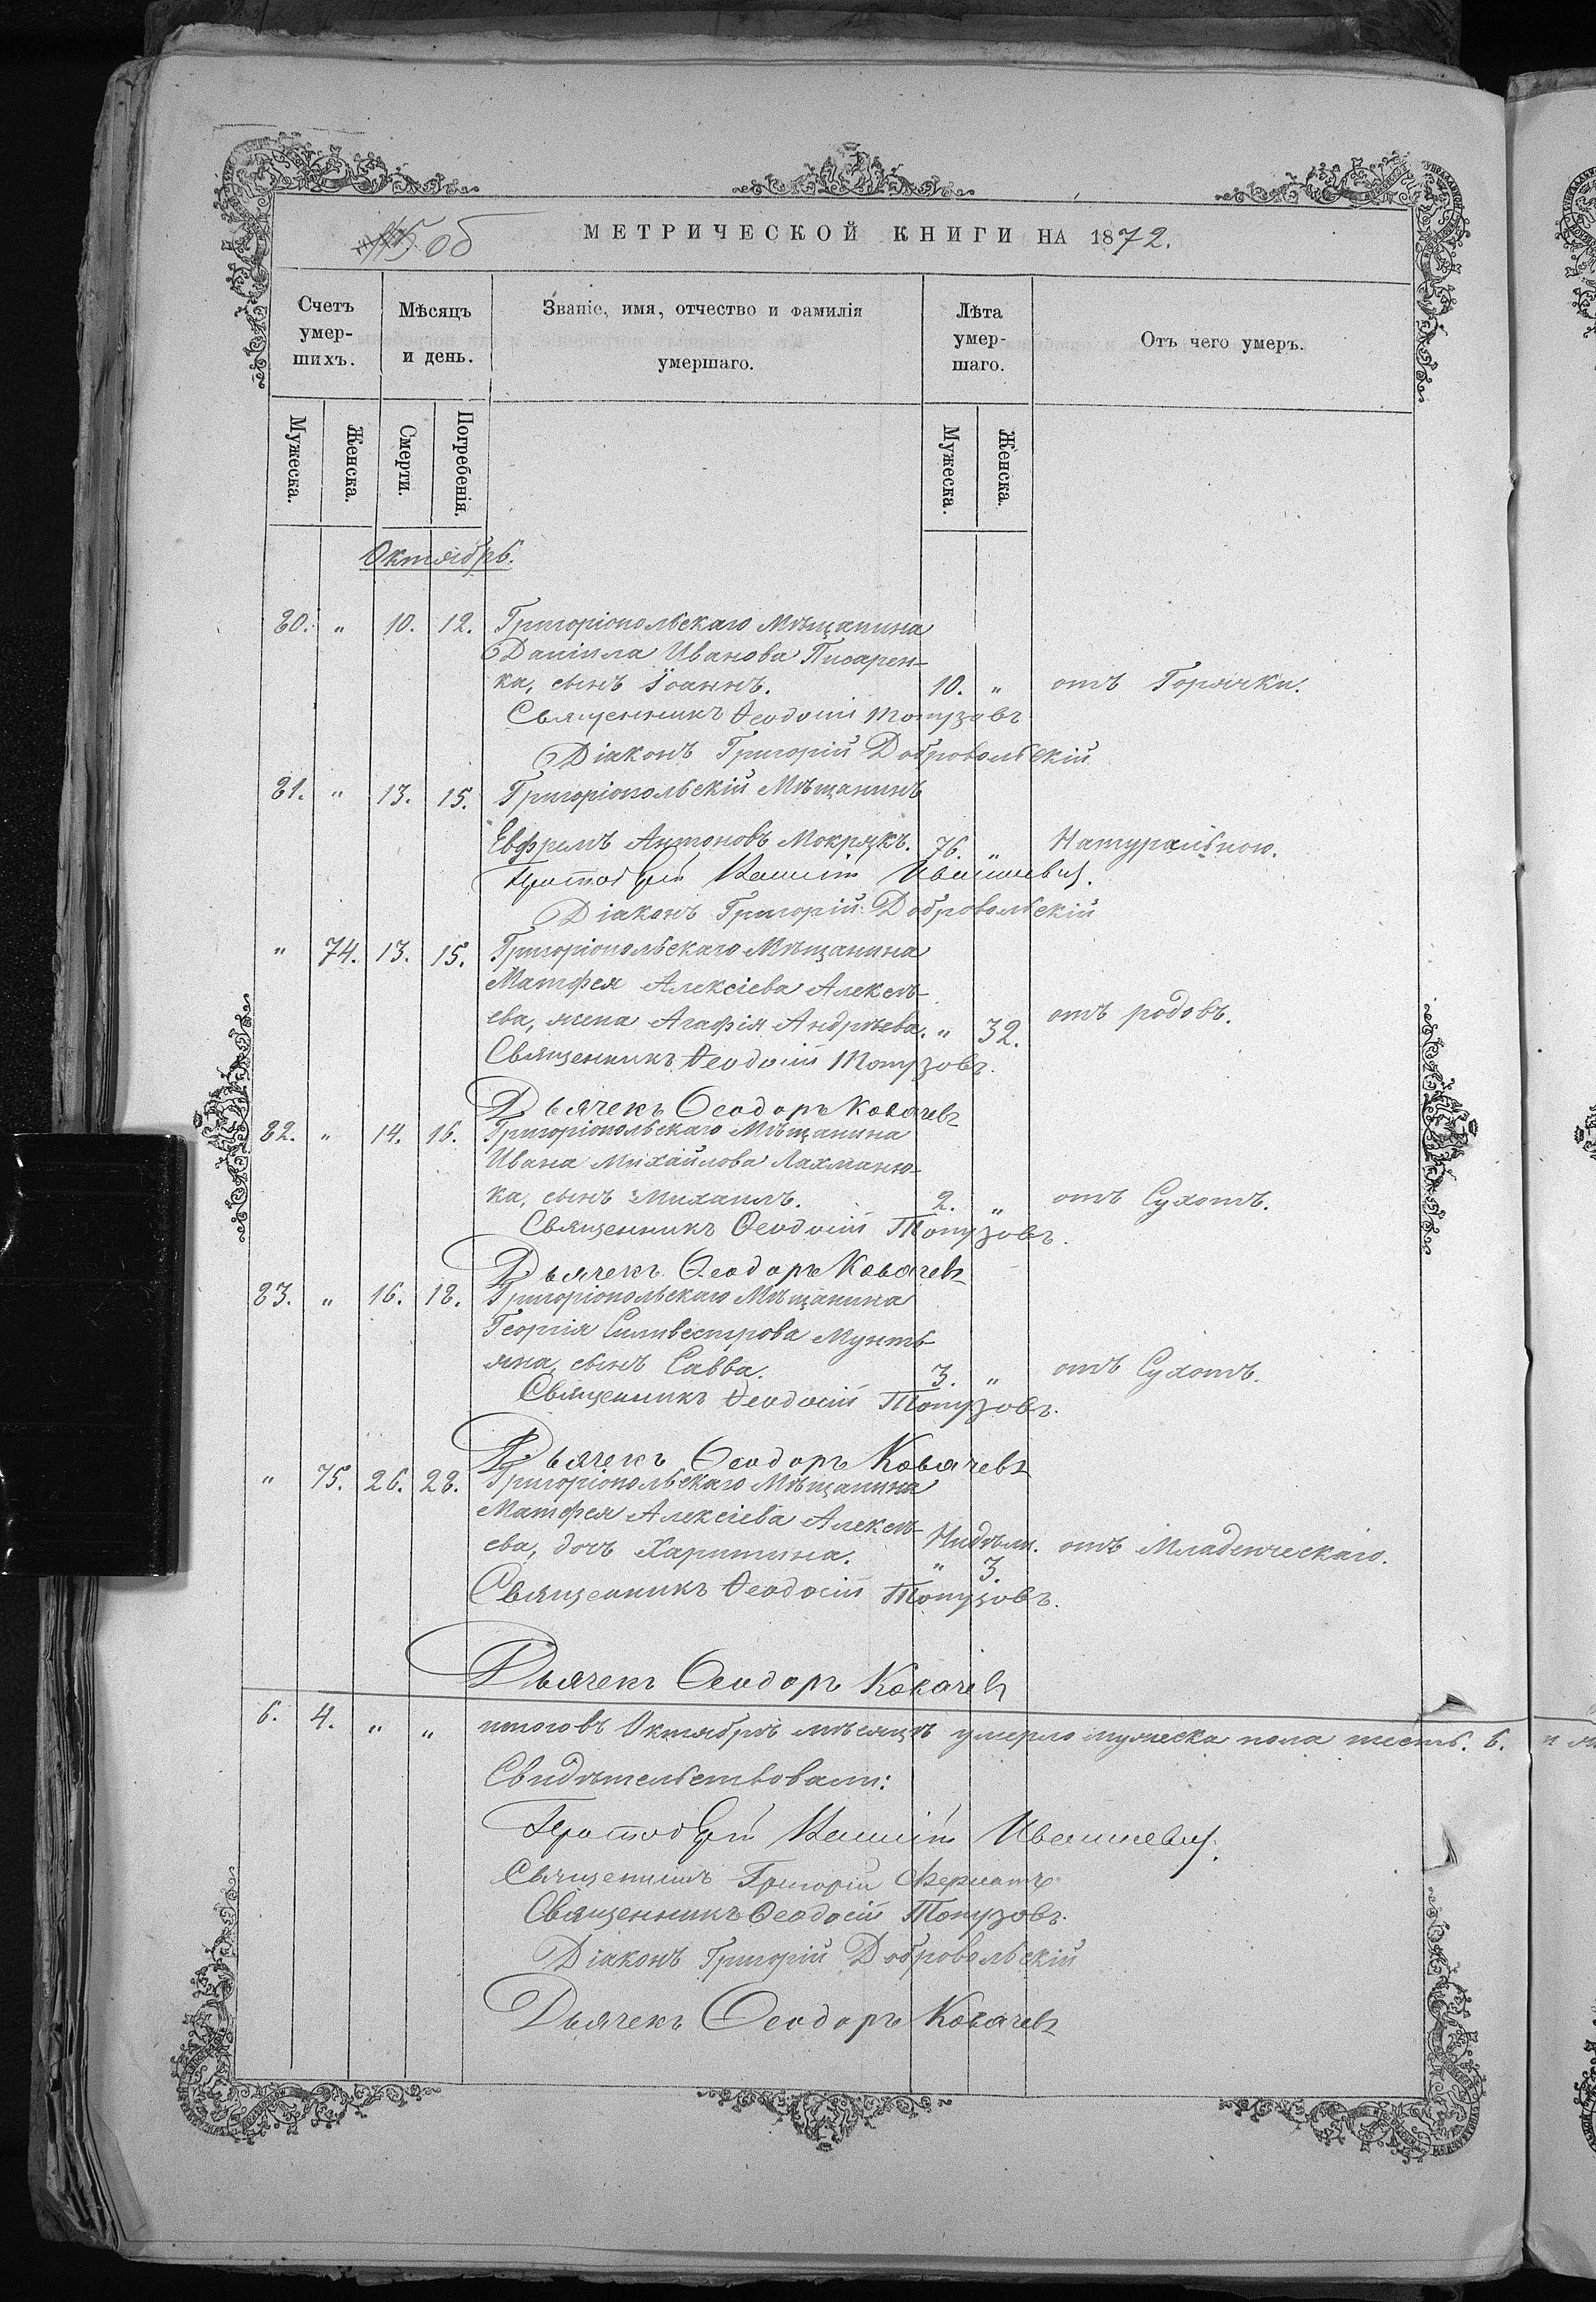 об
МЕТРИЧЕСКОЙ КНИГИ НА 1872.
Счетъ умер- шихъ.
Мѣсяцъ и день.
Званіе, имя, отчество и фамилія умершаго.
Лѣта умер- шаго.
Отъ чего умеръ.
Мужеска. Женска. Смерти. Погребенія. Мужеска. Женска.
Октябрь.
80. " 10. 12. Григоріопольскаго Мѣщанина
Даніила Иванова Писарен-
ка, сынъ Іоаннъ. 10. " отъ Горячки.
Священникъ Ѳеодосій Топузовъ
Діаконъ Григорій Добровольскій
81. " 13. 15. Григоріопольскій Мѣщанинъ
Евфремъ Антоновъ Мокрякъ. 76. " Натуральною.
Діаконъ Григорій Добровольскій
" 74. 13. 15. Григоріопольскаго Мѣщанина
Матфея Алексіева Алексѣ-
ева, жена Агафія Андрѣева. " 32. отъ родовъ.
Священникъ Ѳеодосій Топузовъ.
Дьячекъ Ѳеодоръ Ковачевъ
82. " 14. 16. Григоріопольскаго Мѣщанина
Ивана Михайлова Лахманю-
ка, сынъ Михаилъ. 2. " отъ Сухотъ.
Священникъ Ѳеодосій Топузовъ.
Дьячекъ Ѳеодоръ Ковачевъ
83. " 16. 18. Григоріопольскаго Мѣщанина
Георгія Силивестрова Мунть-
яна, сынъ Савва. 3. " отъ Сухотъ.
Священникъ Ѳеодосій Топузовъ.
Дьячекъ Ѳеодоръ Ковачевъ
" 75. 26. 28. Григоріопольскаго Мѣщанина
Матфея Алексіева Алексѣ-
ева, дочь Харитина. Нидѣли. " 3. отъ Младенческаго.
Священникъ Ѳеодосій Топузовъ.
Дьячекъ Ѳеодоръ Ковачевъ
6. 4. " " итого въ Октябрѣ мѣсяцѣ умерло мужеска пола шесть. 6. и
Свидѣтельствовали:
Священникъ Григорій
Священникъ Ѳеодосій Топузовъ.
Діаконъ Григорій Добровольскій
Дьячекъ Ѳеодоръ Ковачевъ